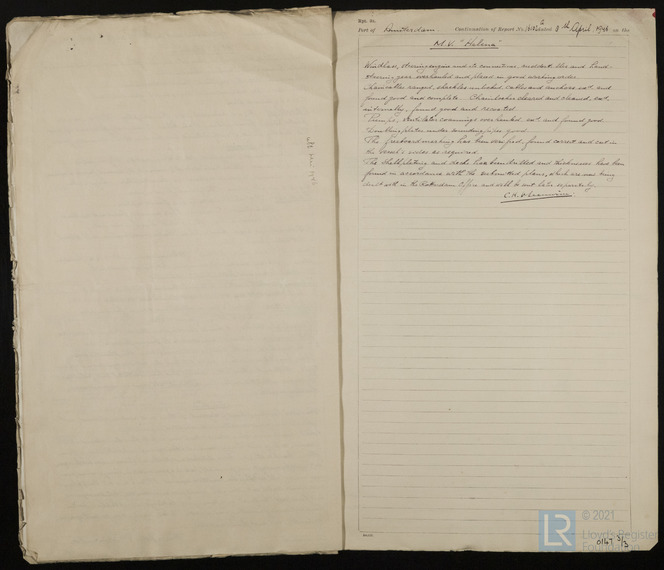 Rpt. 9a.
Port of Amsterdam. Continuation of Report No. dated 9th April 1946 on the
M.V. "Helena"
Windlass, steering engine and its connections, rudder and hand-
steering gear overhauled and placed in good working order.
Chaincables ranged, shackles unlocked, cables and anchors exd. and
found good and complete. Chainlocker cleared and cleaned, exd.
internally, found good and recoated.
Pumps, ventilator coamings overhauled, exd. and found good.
plates under sounding pipes good.
The freeboard marking has been verified, found correct and cut in
the vessel's sides as required.
The Shellplating and decks has been drilled and thicknesses have been
found in accordance with the submitted plans, which are now being
dealt with in the Rotterdam Office and will be sent later separately.
© 2021
Lloyd's Register
Foundation
0147 3/3